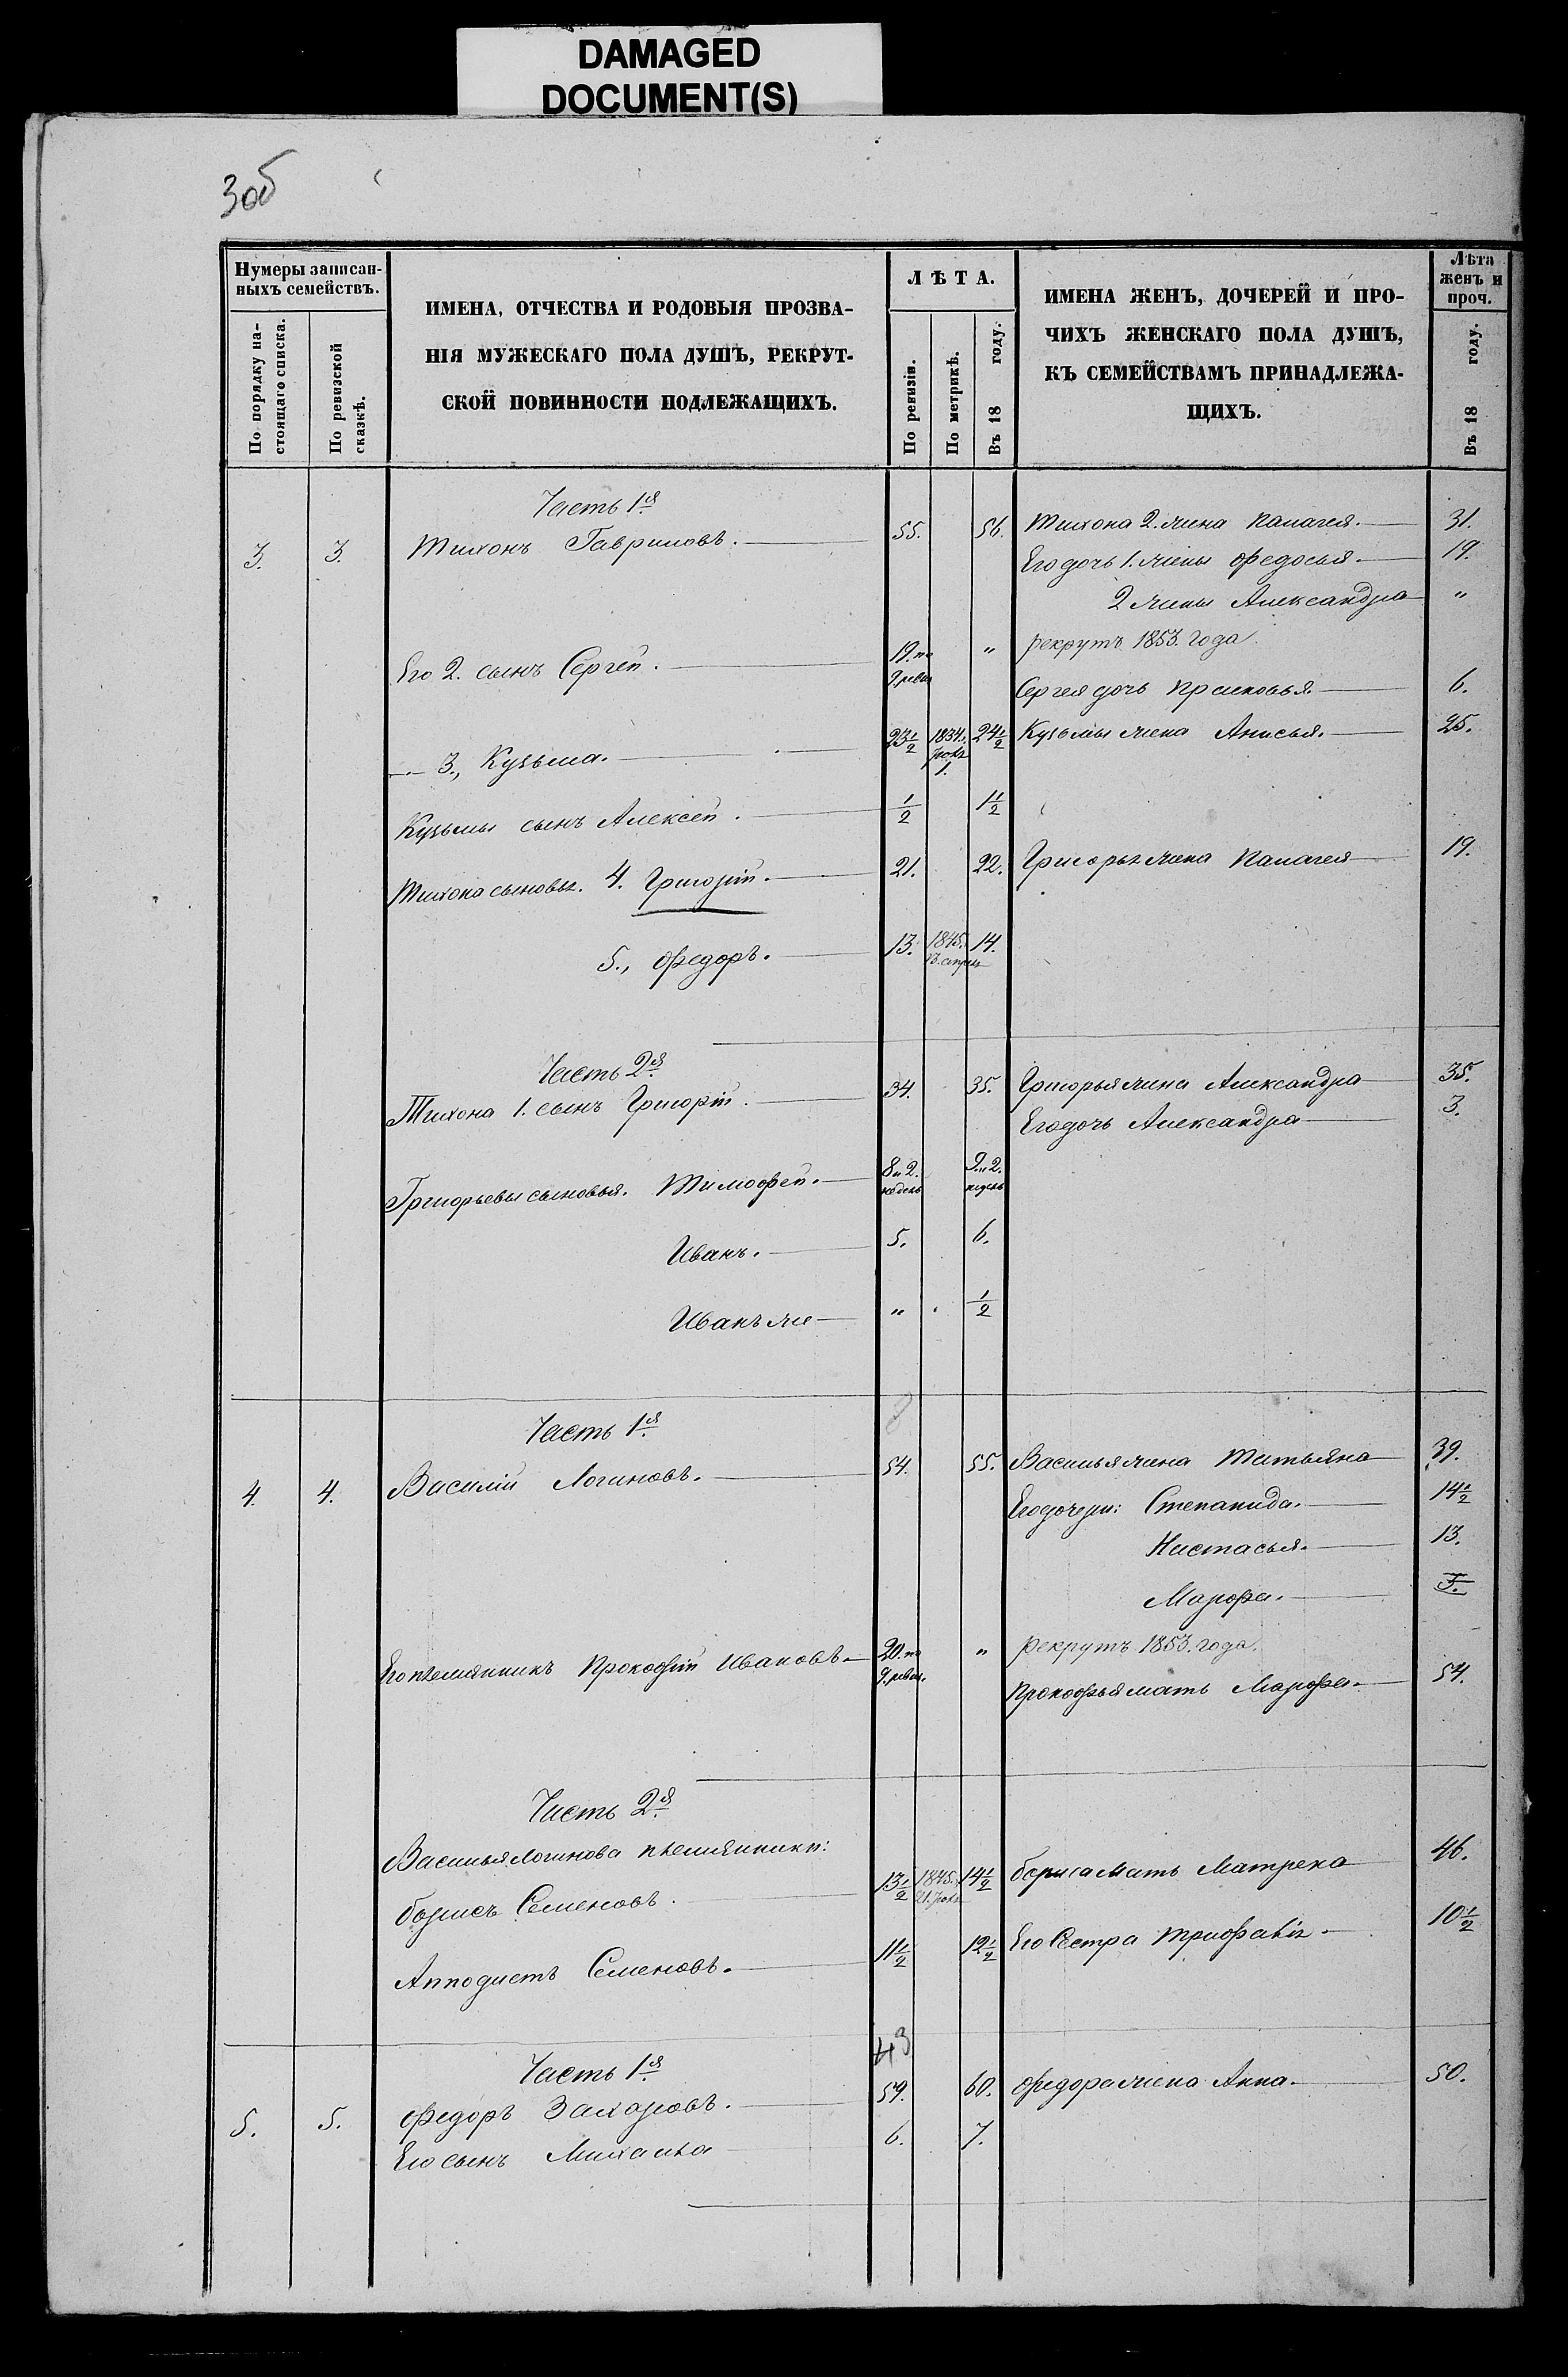 DAMAGED
DOCUMENT(S)
3об
Нумеры записан-
ныхъ семействъ.
По порядку на-
стоящаго списка.
По ревизской
сказкѣ.
ИМЕНА, ОТЧЕСТВА И РОДОВЫЯ ПРОЗВА-
НІЯ МУЖЕСКАГО ПОЛА ДУШЪ, РЕКРУТ-
СКОЙ ПОВИННОСТИ ПОДЛЕЖАЩИХЪ.
ЛѢТА.
По ревизіи.
По метрикѣ.
Въ 18 году.
ИМЕНА ЖЕНЪ, ДОЧЕРЕЙ И ПРО-
ЧИХЪ ЖЕНСКАГО ПОЛА ДУШЪ,
КЪ СЕМЕЙСТВАМЪ ПРИНАДЛЕЖА-
ЩИХЪ.
Лѣта
женъ и
проч.
Въ 18 году.
Часть 1я
3. 3. Тихонъ Гавриловъ. 55. 56. Тихона 2. жена Палагея. 31.
Его дочь 1. жены Федосья. 19.
2 жены Александра "
Его 2. сынъ Сергей. 19. по 9. ревиз " рекрутъ 1853. года
Сергея дочь Прасковья. 6.
— 3., Кузьма. 23 1/2 1834. 1. 24 1/2 Кузьмы жена Анисья. 25.
Кузьмы сынъ Алексей. 1/2 1 1/2
Тихона сыновья. 4. Григорій. 21. 22. Григорья жена Палагея 19.
5., Федоръ. 13. 1845. 14.
Часть 2я
Тихона 1. сынъ Григорій. 34. 35. Григорья жена Александра 35.
Его дочь Александра 3.
Григорьевы сыновья. Тимофей. 8 и 2. недель 9. и 2. недель
Иванъ. 5. 6.
Иванъ же " 1/2
Часть 1я
4. 4. Василій Логиновъ. 54. 55. Василья жена Татьяна 39.
Его дочери: Степанида. 14 1/2
Настасья. 13.
Марфа. 5.
Его племянникъ Прокофій Ивановъ 20. по 9. ревиз. " рекрутъ 1853. года.
Прокофья мать Марфа. 54.
Часть 2я
Василья Логинова племянники:
Борисъ Семеновъ. 13 1/2 1845. 14 1/2 Бориса мать Матрена 46.
Апподистъ Семеновъ. 11 1/2 12 1/2 Его Сестра 10 1/2
43
Часть 1я
5. 5. Федоръ Захаровъ. 59. 60. Федора жена Анна. 50.
Его сынъ Михаила 6. 7.